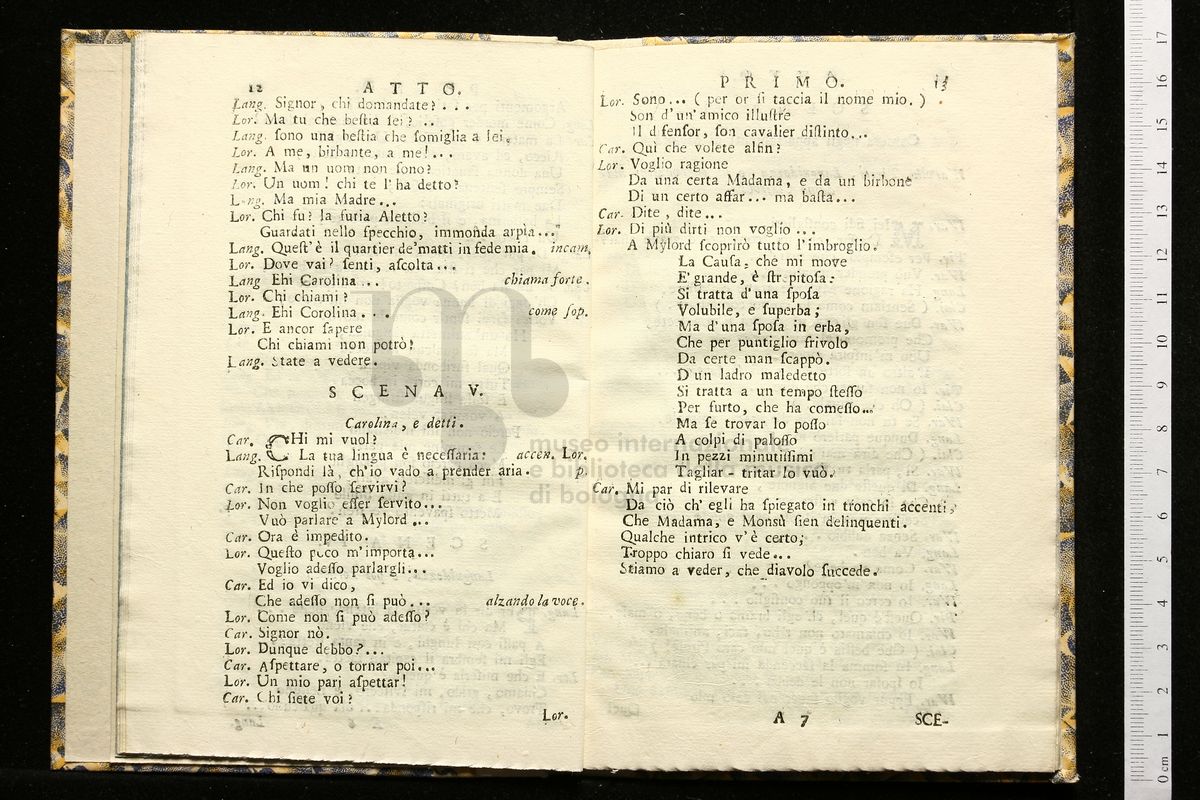 12 ATTO.
Lang. Signor, chi domandate? . . .
Lor. Ma tu che beſtia ſei? ..
Lang. ſono una beſtia che ſomiglia a ſei.
Lor. A me, birbante, a me!...
Lang. Ma un uom non ſono?
Lor. Un uom! chi te l'ha detto?
Lang. Ma mia Madre...
Lor. Chi fu? la furia Aletto?
Guardati nello ſpecchio, immonda arpia..."
Lang. Queſt'è il quartier de'matti in fede mia. incam.
Lor. Dove vai? ſenti, aſcolta...
Lang Ehi Carolina... chiama forte.
Lor. Chi chiami?
Lang. Ehi Corolina. . . come ſop.
Lor. E ancor ſapere
Chi chiami non potrò!
Lang. State a vedere.
SCENA V.
Carolina, e detti.
Car. CHi mi vuol?
Lang. La tua lingua è neceſſaria: accen. Lor.
Riſpondi là, ch'io vado a prender aria. p.
Car. In che poſſo ſervirvi?
Lor. Non voglio eſſer ſervito...
Vuò parlare a Mylord ...
Car. Ora è impedito.
Lor. Queſto poco m'importa...
Voglio adeſſo parlargli...
Car. Ed io vi dico,
Che adeſſo non ſi può... alzando la voce.
Lor. Come non ſi può adeſſo?
Car. Signor nò.
Lor. Dunque debbo?...
Car. Aſpettare, o tornar poi...
Lor. Un mio pari aſpettar!
Car. Chi ſiete voi?
Lor.
PRIMO. 13
Lor. Sono... (per or ſi taccia il nome mio.)
Son d'un'amico illuſtre
Il difenſor, ſon cavalier diſtinto...
Car. Quì che volete alfin?
Lor. Voglio ragione
Da una certa Madama, e da un birbone
Di un certo affar... ma baſta...
Car. Dite, dite...
Lor. Di più dirti non voglio ...
A Mylord ſcoprirò tutto l'imbroglio.
La Cauſa, che mi move
E' grande, è ſtrepitoſa:
Si tratta d'una ſpoſa
Volubile, e ſuperba;
Ma d'una ſpoſa in erba,
Che per puntiglio frivolo
Da certe man ſcappò.
D'un ladro maledetto
Si tratta a un tempo ſteſſo
Per furto, che ha comeſſo...
Ma ſe trovar lo poſſo
A colpi di paloſſo
In pezzi minutiſſimi
Tagliar - tritar lo vuò.
Car. Mi par di rilevare
Da ciò ch'egli ha ſpiegato in tronchi accenti,
Che Madama, e Monsù ſien delinquenti.
Qualche intrico v'è certo;
Troppo chiaro ſi vede...
Stiamo a veder, che diavolo ſuccede.
A 7 SCE-
museo internazionale
e biblioteca della musica
di bologna
0 cm 1 2 3 4 5 6 7 8 9 10 11 12 13 14 15 16 17